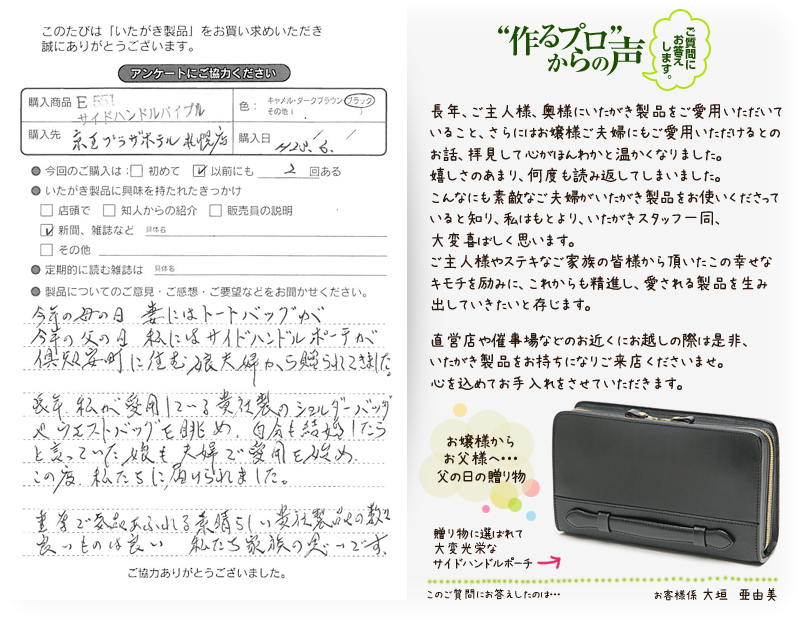 このたびは「いたがき製品」をお買い求めいただき
誠にありがとうございます。
アンケートにご協力ください
購入商品 E551
サイドハンドルバイブル
色： キャメル・ダークブラウン ブラック
その他（ ）
購入先 京王プラザホテル札幌店
購入日 H23. 6.
今回のご購入は： 初めて 以前にも 2 回ある
いたがき製品に興味を持たれたきっかけ
店頭で 知人からの紹介 販売員の説明
新聞、雑誌など 具体名
その他
定期的に読む雑誌は 具体名
製品についてのご意見・ご感想・ご要望などをお聞かせください。
今年の母の日 妻にはトートバッグが
今年の父の日 私にはサイドハンドルポーチが
倶知安町に住む娘夫婦から贈られてきました。
長年、私が愛用している貴社製のショルダーバッグ
やウエストバッグを眺め、自分も結婚したら
と言っていた娘も夫婦で愛用を始め、
この度、私たちに届けられました。
重厚で気品あふれる素晴らしい貴社製品の数々
良いものは良い 私たち家族の思いです。
ご協力ありがとうございました。
“作るプロ”
からの声
ご質問に
お答え
します。
長年、ご主人様、奥様にいたがき製品をご愛用いただいて
いること、さらにはお嬢様ご夫婦にもご愛用いただけるとの
お話、拝見して心がほんわかと温かくなりました。
嬉しさのあまり、何度も読み返してしまいました。
こんなにも素敵なご夫婦がいたがき製品をお使いくださって
いると知り、私はもとより、いたがきスタッフ一同、
大変喜ばしく思います。
ご主人様やステキなご家族の皆様から頂いたこの幸せな
キモチを励みに、これからも精進し、愛される製品を生み
出していきたいと存じます。
直営店や催事場などのお近くにお越しの際は是非、
いたがき製品をお持ちになりご来店くださいませ。
心を込めてお手入れをさせていただきます。
お嬢様から
お父様へ…
父の日の贈り物
贈り物に選ばれて
大変光栄な
サイドハンドルポーチ
このご質問にお答えしたのは… お客様係 大垣 亜由美